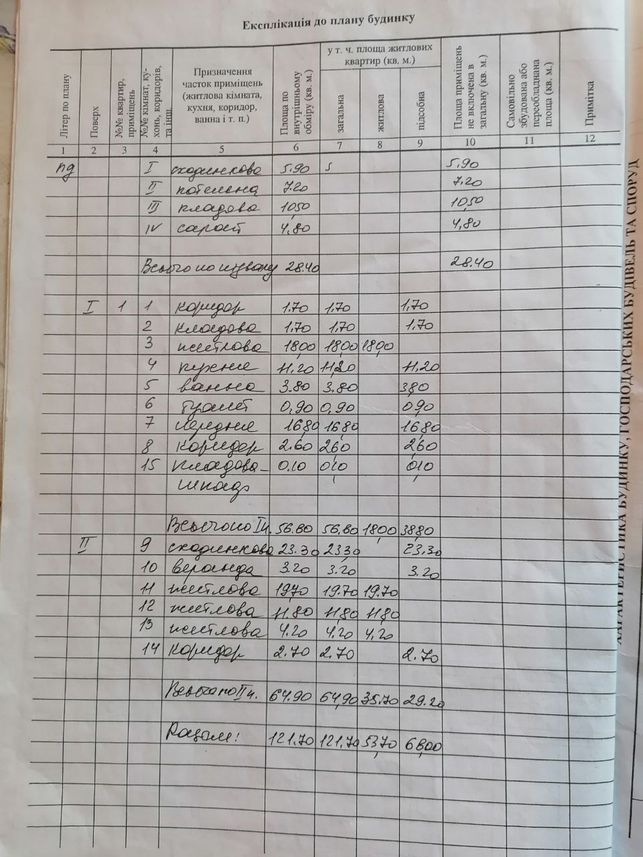 Експлікація до плану будинку
Літер по плану
Поверх
№№ квартир, приміщень
№№ кімнат, кухонь, коридорів, та інщ.
Призначення
часток приміщень
(житлова кімната,
кухня, коридор,
ванна і т. п.)
Площа по внутрішньому обміру (кв. м.)
у т. ч. площа житлових
квартир (кв. м.)
загальна
житлова
підсобна
Площа приміщень не включена в загальну (кв. м.)
Самовільно збудована або переобладнана площа (кв. м.)
Примітка
1 2 3 4 5 6 7 8 9 10 11 12
пд I сходинкова 5.90 5 5.90
II котельна 7.20 7.20
III кладова 10,50 10,50
IV сарай 4,80 4,80
Всього по підвалу 28.40 28.40
I 1 1 коридор 1.70 1,70 1,70
2 кладова 1.70 1,70 1,70
3 житлова 18,00 18,00 18,00
4 кухня 11.20 11,20 11,20
5 ванна 3.80 3.80 3,80
6 туалет 0,90 0,90 0,90
7 передня 16,80 16,80 16,80
8 коридор 2.60 2,60 2,60
15 кладова- 0,10 0,10 0,10
шкаф
Всього по I п. 56.80 56,80 18,00 38,80
II 9 сходинкова 23.30 23,30 23,30
10 веранда 3.20 3.20 3.20
11 житлова 19,70 19.70 19.70
12 житлова 11.80 11,80 11,80
13 житлова 4.20 4.20 4,20
14 коридор 2.70 2.70 2.70
Всього по II п. 64.90 64,90 35,70 29.20
Разом: 121.70 121,70 53,70 68,00
ХАРАКТЕРИСТИКА БУДИНКУ, ГОСПОДАРСЬКИХ БУДІВЕЛЬ ТА СПОРУД